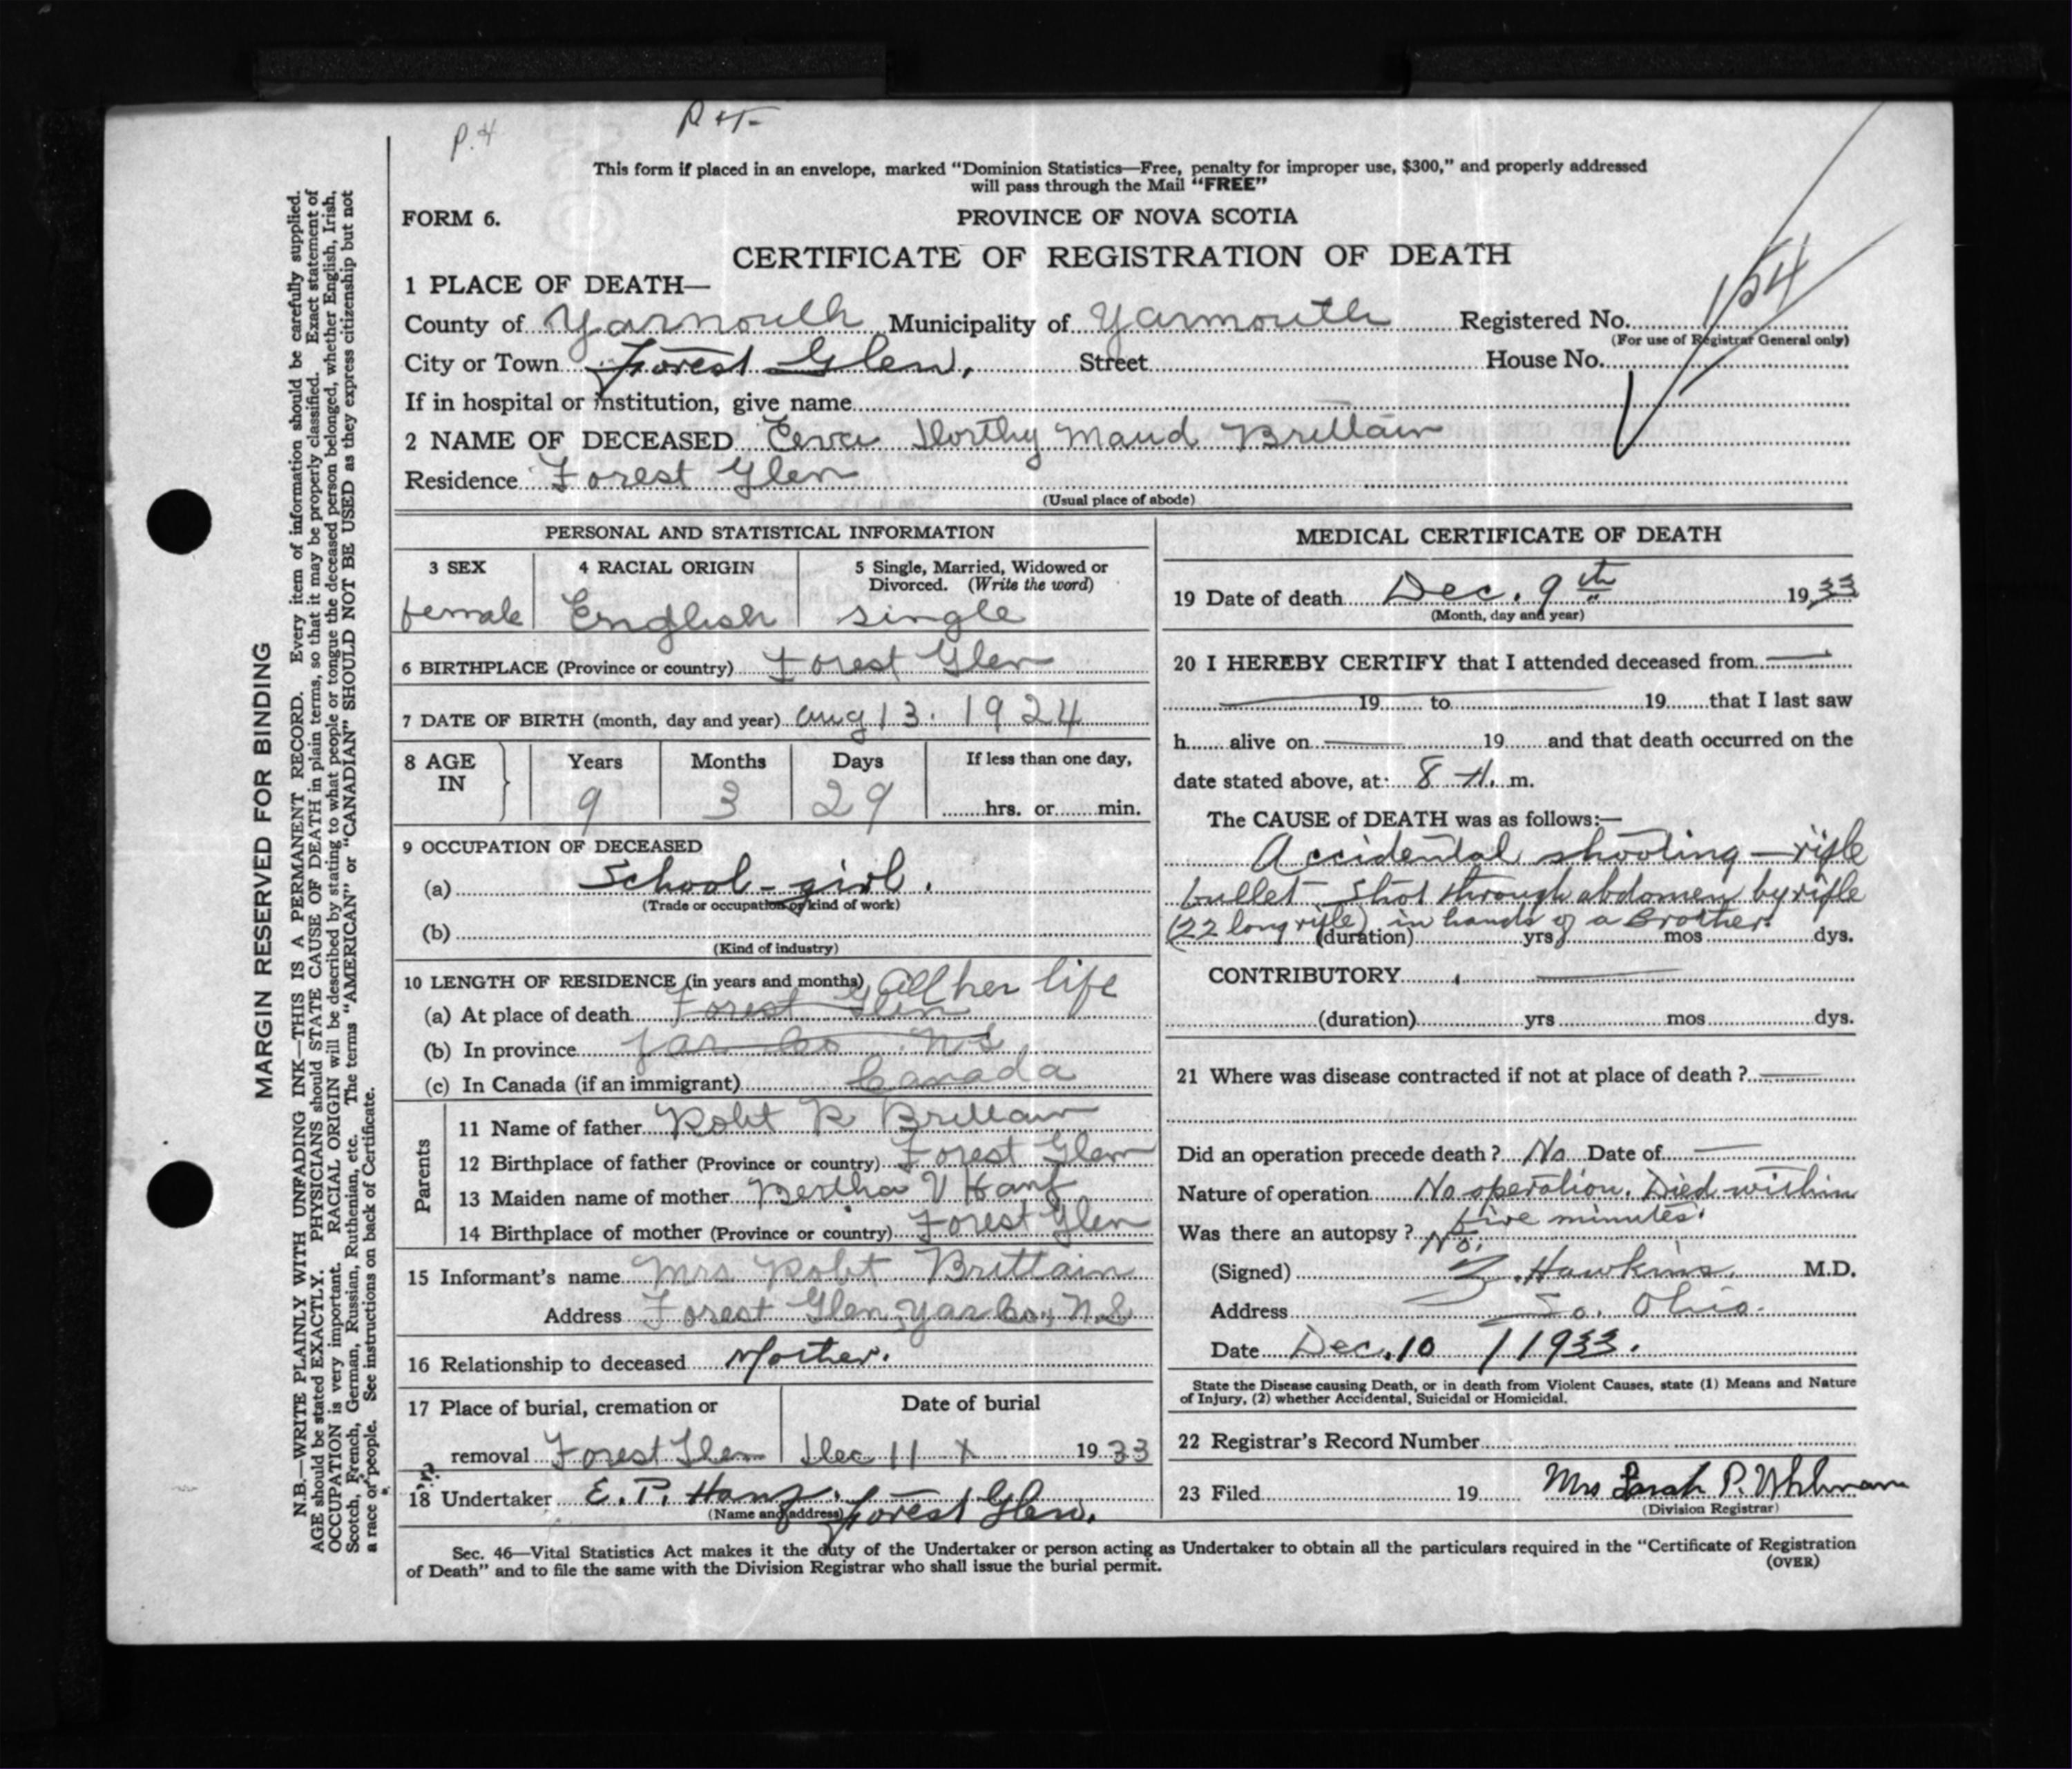 P.4
P 4
This form if placed in an envelope, marked “Dominion Statistics—Free, penalty for improper use, $300,” and properly addressed
will pass through the Mail “FREE”
FORM 6.
PROVINCE OF NOVA SCOTIA
CERTIFICATE OF REGISTRATION OF DEATH
1 PLACE OF DEATH—
County of Yarmouth Municipality of Yarmouth Registered No. 154
(For use of Registrar General only)
City or Town Forest Glen, Street House No.
If in hospital or institution, give name
2 NAME OF DECEASED Dorthy Maud Brittain
Residence Forest Glen
(Usual place of abode)
PERSONAL AND STATISTICAL INFORMATION
3 SEX 4 RACIAL ORIGIN 5 Single, Married, Widowed or
Divorced. (Write the word)
female English single
6 BIRTHPLACE (Province or country) Forest Glen
7 DATE OF BIRTH (month, day and year) Aug 13. 1924
8 AGE IN Years Months Days If less than one day,
9 3 29 hrs. or min.
9 OCCUPATION OF DECEASED
(a) School-girl.
(Trade or occupation or kind of work)
(b)
(Kind of industry)
10 LENGTH OF RESIDENCE (in years and months) All her life
(a) At place of death Forest Glen
(b) In province Yar Co N S
(c) In Canada (if an immigrant) Canada
Parents
11 Name of father Robt R Brittain
12 Birthplace of father (Province or country) Forest Glen
13 Maiden name of mother Bertha V Hanf
14 Birthplace of mother (Province or country) Forest Glen
15 Informant's name Mrs Robt Brittain
Address Forest Glen, Yar Co., N.S
16 Relationship to deceased Mother.
17 Place of burial, cremation or Date of burial
removal Forest Glen Dec 11 x 1933
18 Undertaker E. P. Hanf. Forest Glen.
(Name and address)
MEDICAL CERTIFICATE OF DEATH
19 Date of death Dec. 9th 1933
(Month, day and year)
20 I HEREBY CERTIFY that I attended deceased from —
19 to 19 that I last saw
h alive on — 19 and that death occurred on the
date stated above, at: 8 A. m.
The CAUSE of DEATH was as follows:—
Accidental shooting — rifle
bullet - shot through abdomen by rifle
(22 long rifle) in hands of a Brother.
(duration) yrs mos dys.
CONTRIBUTORY —
(duration) yrs mos dys.
21 Where was disease contracted if not at place of death ? —
Did an operation precede death ? No Date of —
Nature of operation No operation. Died within
five minutes.
Was there an autopsy ? No.
(Signed) Z. Hawkins. M.D.
Address So. Ohio.
Date Dec. 10 / 1933.
State the Disease causing Death, or in death from Violent Causes, state (1) Means and Nature
of Injury, (2) whether Accidental, Suicidal or Homicidal.
22 Registrar's Record Number
23 Filed 19 Mrs Sarah P.
(Division Registrar)
Sec. 46—Vital Statistics Act makes it the duty of the Undertaker or person acting as Undertaker to obtain all the particulars required in the “Certificate of Registration
of Death” and to file the same with the Division Registrar who shall issue the burial permit.
(OVER)
MARGIN RESERVED FOR BINDING
N.B.—WRITE PLAINLY WITH UNFADING INK—THIS IS A PERMANENT RECORD. Every item of information should be carefully supplied.
AGE should be stated EXACTLY. PHYSICIANS should STATE CAUSE OF DEATH in plain terms, so that it may be properly classified. Exact statement of
OCCUPATION is very important. RACIAL ORIGIN will be described by stating to what people or tongue the deceased person belonged, whether English, Irish,
Scotch, French, German, Russian, Ruthenian, etc. The terms “AMERICAN” or “CANADIAN” SHOULD NOT BE USED as they express citizenship but not
a race or people. See instructions on back of Certificate.